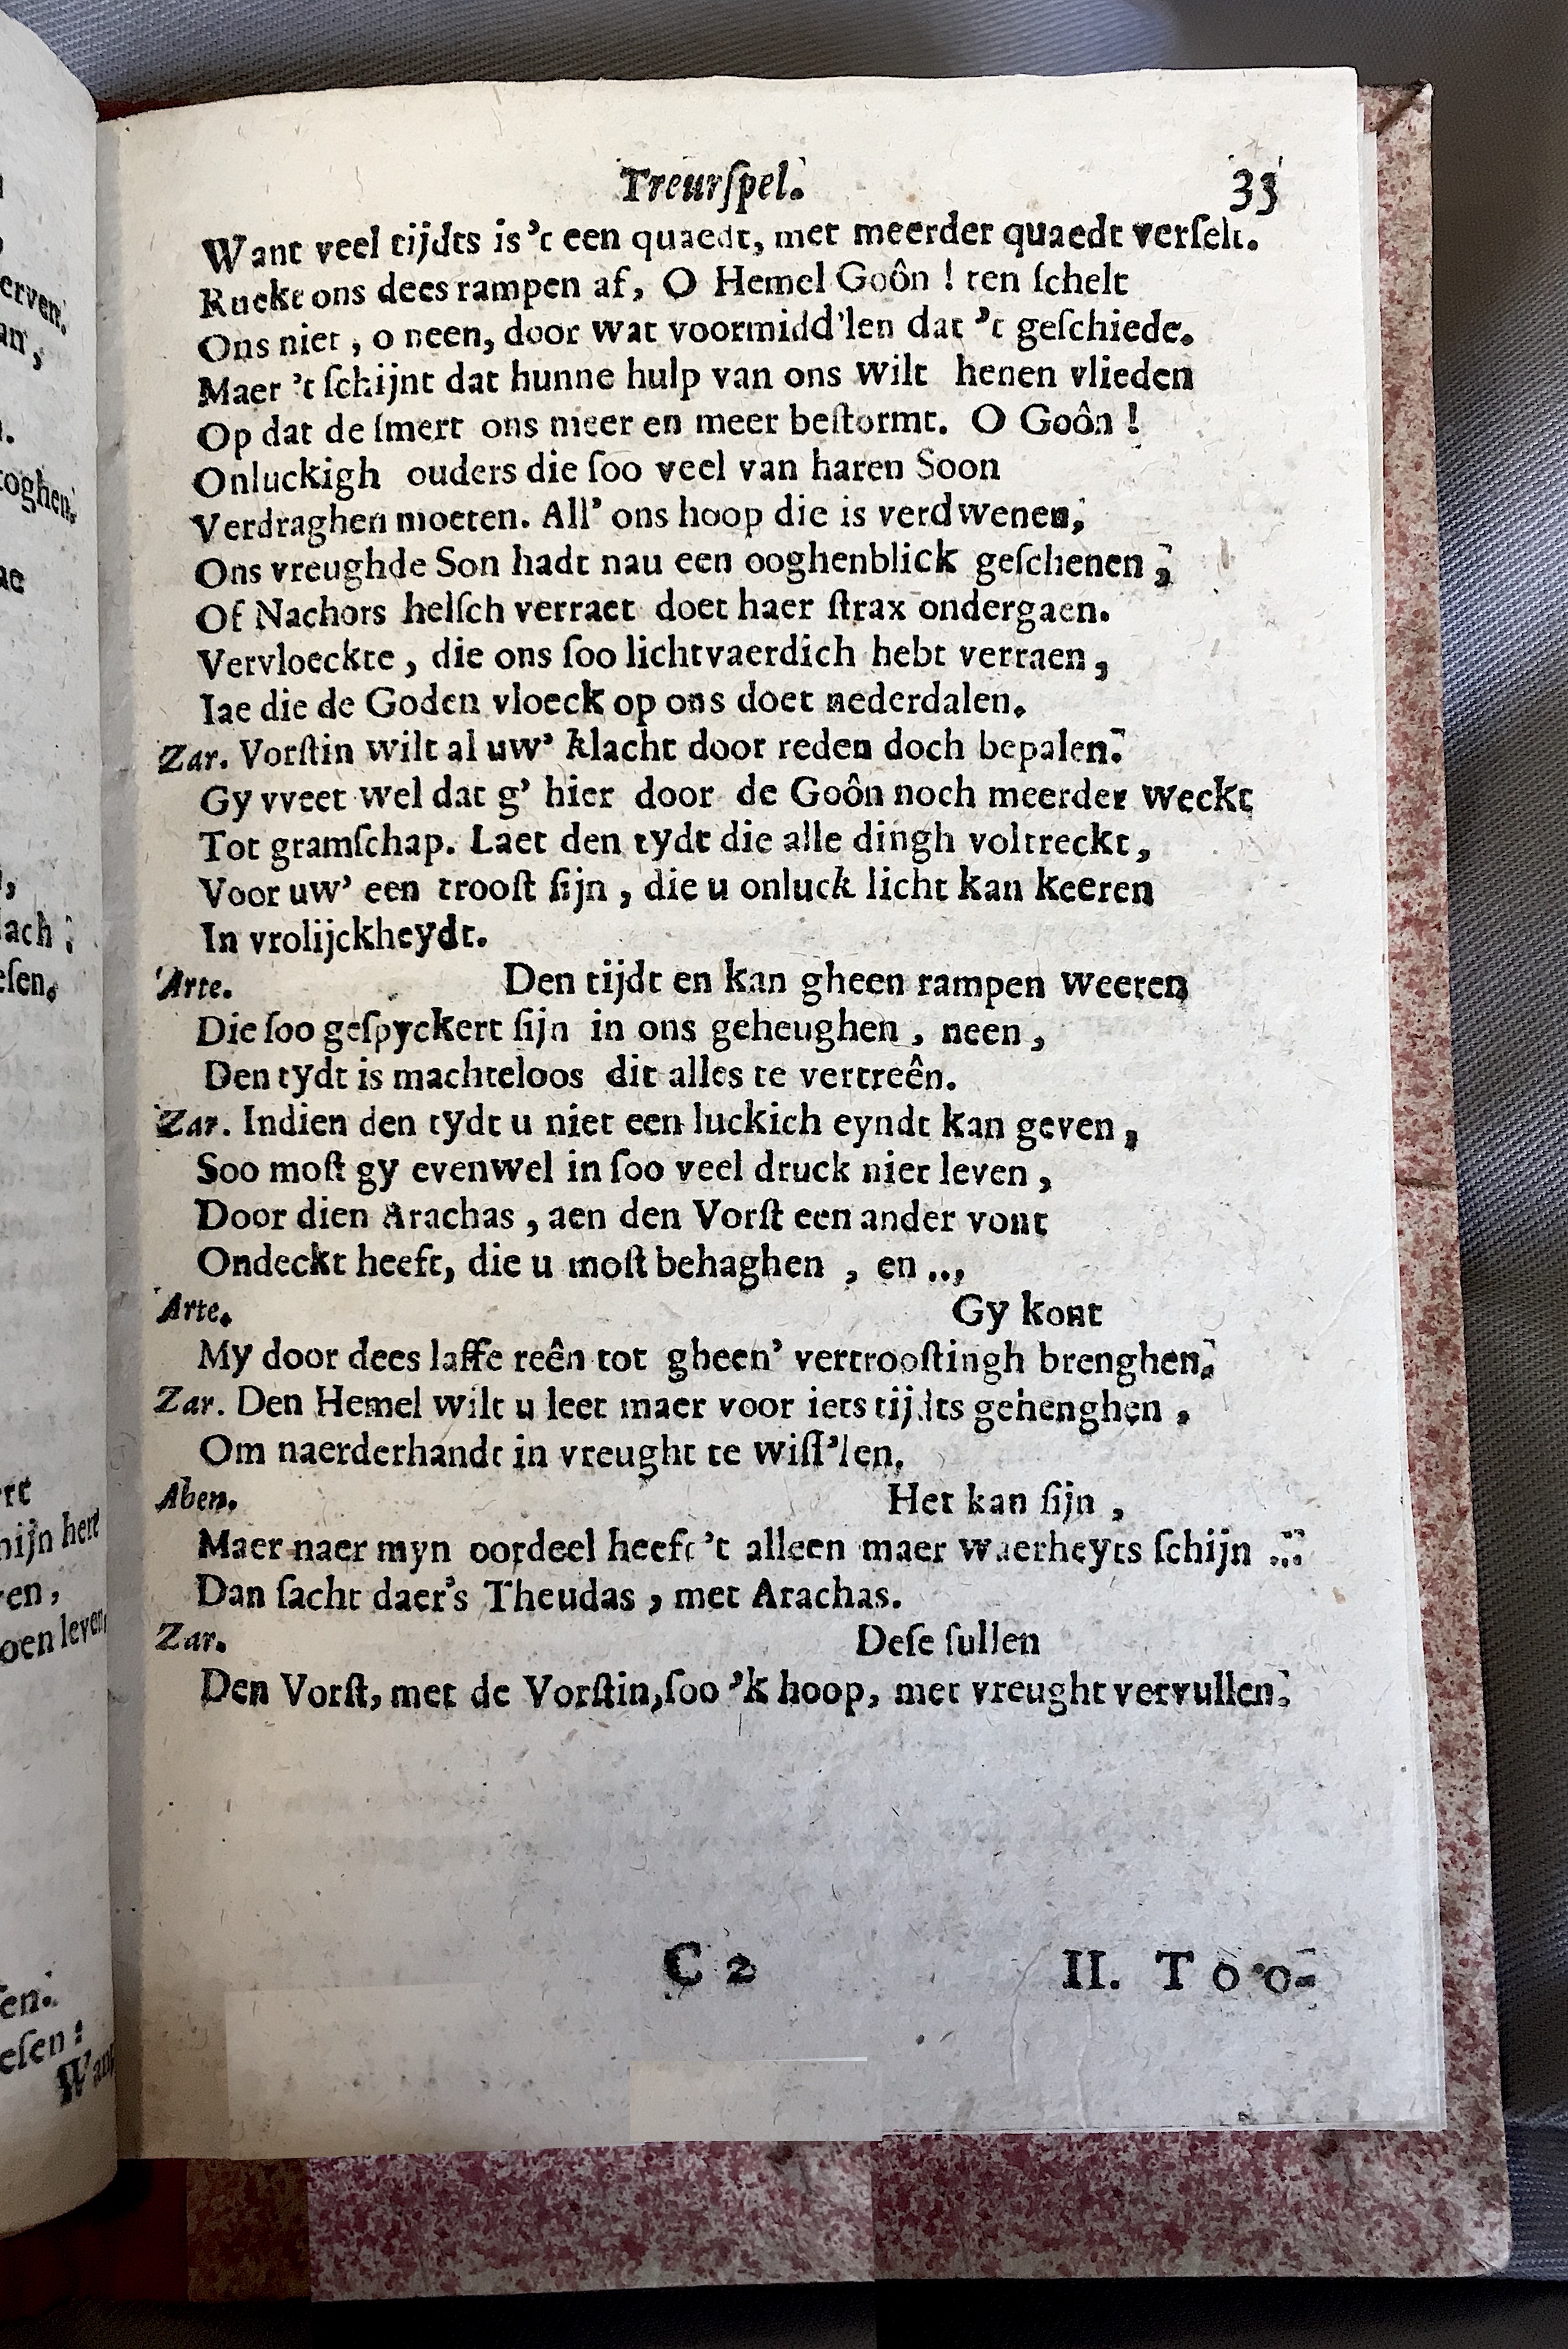 Treurſpel. 33
Want veel tijdts is 't een quaedt, met meerder quaedt verſelt.
Ruckt ons dees rampen af, O Hemel Goôn ! ten ſchelt
Ons niet , o neen, door wat voormidd'len dat 't geſchiede.
Maer 't ſchijnt dat hunne hulp van ons wilt henen vlieden
Op dat de ſmert ons meer en meer beſtormt. O Goôn !
Onluckigh ouders die ſoo veel van haren Soon
Verdraghen moeten. All' ons hoop die is verdwenen,
Ons vreughde Son hadt nau een ooghenblick geſchenen ,
Of Nachors helſch verraet doet haer ſtrax ondergaen.
Vervloeckte , die ons ſoo lichtvaerdich hebt verraen ,
Iae die de Goden vloeck op ons doet nederdalen.
Zar. Vorſtin wilt al uw' klacht door reden doch bepalen.
Gy vveet wel dat g' hier door de Goôn noch meerder weckt
Tot gramſchap. Laet den tydt die alle dingh voltreckt ,
Voor uw' een trooſt ſijn , die u onluck licht kan keeren
In vrolijckheydt.
Arte. Den tijdt en kan gheen rampen weeren
Die ſoo geſpyckert ſijn in ons geheughen , neen ,
Den tydt is machteloos dit alles te vertreên.
Zar. Indien den tydt u niet een luckich eyndt kan geven ,
Soo moſt gy evenwel in ſoo veel druck niet leven ,
Door dien Arachas , aen den Vorſt een ander vont
Ondeckt heeft, die u moſt behaghen , en ..,
Arte. Gy kont
My door dees laffe reên tot gheen' vertrooſtingh brenghen.
Zar. Den Hemel wilt u leet maer voor iets tijdts gehenghen ,
Om naerderhandt in vreught te wiſſ'len.
Aben. Het kan ſijn ,
Maer naer myn oordeel heeft 't alleen maer waerheyts ſchijn ...
Dan ſacht daer's Theudas , met Arachas.
Zar. Deſe ſullen
Den Vorſt, met de Vorſtin, ſoo 'k hoop, met vreught vervullen.
C 2 II. Too-